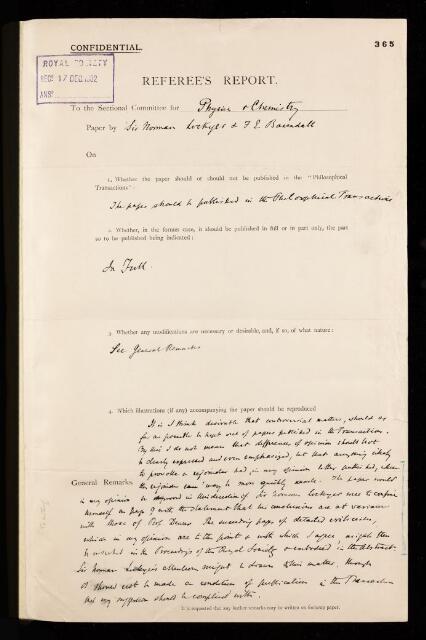 CONFIDENTIAL.
365
ROYAL SOCIETY
REC? 17 DEC 1902
ANS?
REFEREE'S REPORT.
To the Sectional Committee for Physics & Chemistry
Paper by Sir Norman Lockyer & F E Baxandall
On
1. Whether the paper should or should not be published in the "Philosophical
Transactions":
The paper should be published in the Philosophical Transactions
2. Whether, in the former case, it should be published in full or in part only, the part
so to be published being indicated:
In Full.
3. Whether any modifications are necessary or desirable, and, if so, of what nature:
See General Remarks
4. Which illustrations (if any) accompanying the paper should be reproduced
It is I think desirable that controversial matters, should as
far as possible be kept out of papers published in the Transactions.
By this I do not mean that differences of opinion should not
be clearly expressed and even emphasized, but that anything likely
to provoke a rejoinder had, in my opinion better omitted, when
the rejoinder can more quickly made. The paper would
General Remarks
in my opinion be improved in this direction if Sir Norman Lockyer were to confine
himself on page 9 with the statement that his conclusions are at variance
with those of Prof The succeeding pages of detailed criticism,
which in my opinion are to the point & with which I agree, might then
be inserted in the Proceedings of the Royal Society & embodied in the abstract.
Sir Norman Lockyer's attention might be drawn to this matter, though
I should not be made a condition of publication in the Transactions
that my suggestion should be complied with.
It is requested that any further remarks may be written on foolscap paper.